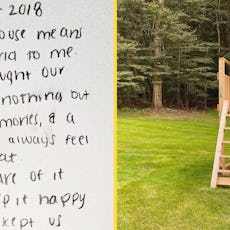 2018
ouse means
to me.
ught our
nothing but
mories, & a
always feel
at.
are of it
p it happy
kept us